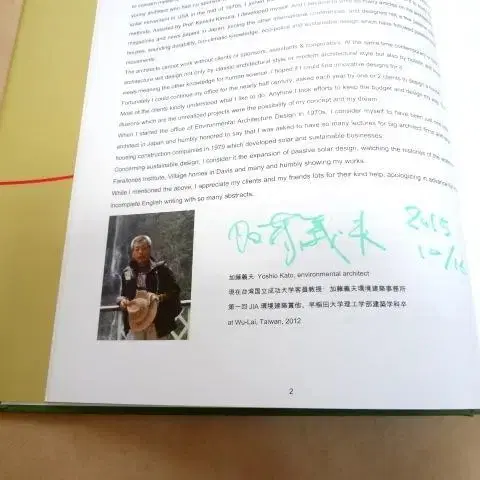 magazines and news papers in Japan, joining the other international conferences, and designed not a few passive
methods. Assisted by Prof. Kenichi Kimura, I developed myself. And I became to write so many articles on the
sounding durability, bio-climatic knowledge, ecological and sustainable design which have followed passive
movements.
The architects cannot work without clients or sponsors, assistants & cooperators. At the same time contemporary
architecture will design not only by classic architectural style or modern architectural style but also by
news meaning the other knowledge for human science. I hoped if I could see innovative designs for it.
Fortunately I could continue my office for the nearly half century, asked each year by one or 2 clients to design a
Most of the clients kindly understood what I like to do. Anyhow I took efforts to keep the budget and design my
illusions which are the unrealized projects were the possibility of my concept and my dream.
When I started the office of Environmental Architecture Design in 1970s, I consider myself to have been just one
architect in Japan and humbly honored to say that I was asked to have so many lectures for big architect firms and
housing construction companies in 1979 which developed solar and sustainable businesses.
Concerning sustainable design, I consider it the expansion of passive solar design, watching the histories of the
Farallones Institute, Village homes in Davis and many and humbly showing my works.
While I mentioned the above, I appreciate my clients and my friends lots for their kind help, apologizing in advance for
incomplete English writing with so many abstracts.
加藤義夫
2015
10/
加藤義夫 Yoshio Kato, environmental architect
現在台湾国立成功大学客員教授・加藤義夫環境建築事務所
第一回 JIA 環境建築賞他、早稲田大学理工学部建築学科卒
at Wu-Lai, Taiwan, 2012
2